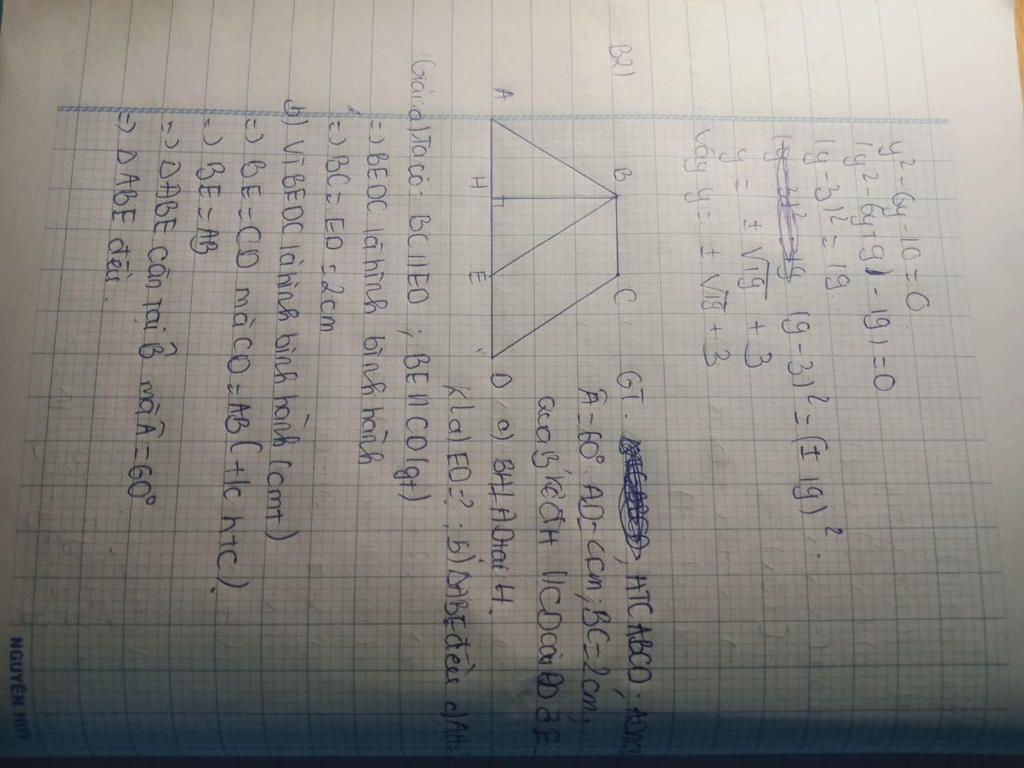 y² - 6y - 10 = 0
(y² - 6y + 9) - 19) = 0
(y - 3)² = 19.
(y - 3)² = (± 19)².
y = ± √19 + 3
Vậy y = ± √19 + 3
B2)
A B C D E H
GT. HTC ABCD;
Â = 60°. AD = 4cm; BC = 2cm;
qua B kẻ đt // CD cắt AD ở E.
a) BH ⊥ AD tại H.
KL a) ED = ? ; b) ΔABE đều c) AH
Giải a) Ta có: BC // ED ; BE // CD (gt)
=> BEDC là hình bình hành
=> BC = ED = 2cm
b) Vì BEDC là hình bình hành (cmt)
=> BE = CD mà CD = AB (t/c htc).
=> BE = AB
=> ΔABE cân tại B̂ mà Â = 60°
=> ΔABE đều.
NGUYÊN HUY